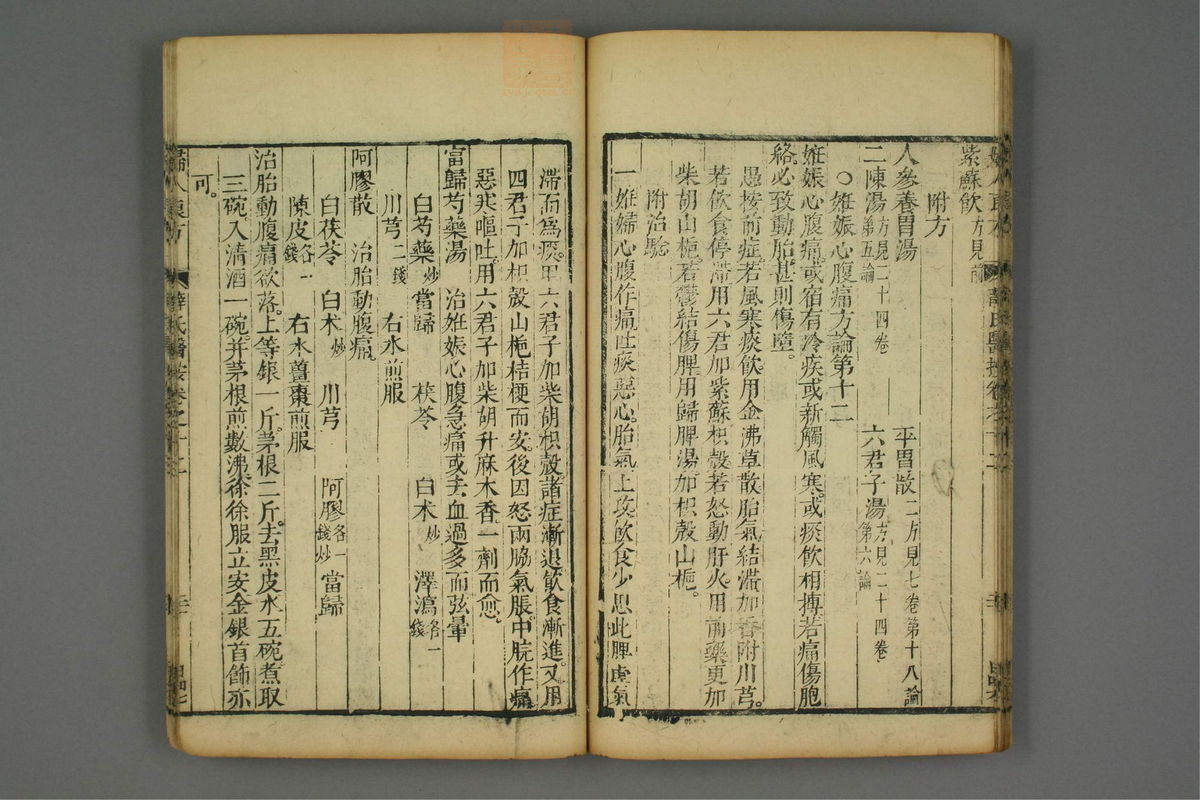 附方
紫蘇飲方見前
人參養胃湯 平胃散二方見七卷第十八論
二陳湯方見二十四卷第五論 六君子湯方見二十四卷第六論
○妊娠心腹痛方論第十二
妊娠心腹痛或宿有冷疾或新觸風寒或痰飲相搏若痛傷胞
絡必致動胎甚則傷墮
愚按前症若風寒痰飲用金沸草散胎氣結滯加香附川芎
若飲食停滯用六君加紫蘇枳殼若怒動肝火用前藥更加
柴胡山梔若鬱結傷脾用歸脾湯加枳殼山梔
附治驗
一妊婦心腹作痛吐痰惡心胎氣上攻飲食少思此脾虛氣
滯而為痰用六君子加柴胡枳殼諸症漸退飲食漸進又用
四君子加枳殼山梔桔梗而安後因怒兩脇氣脹中脘作痛
惡寒嘔吐用六君子加柴胡升麻木香一劑而愈
當歸芍藥湯 治妊娠心腹急痛或去血過多而弦暈
白芍藥炒 當歸 茯苓 白朮炒 澤瀉各一錢
川芎二錢 右水煎服
阿膠散 治胎動腹痛
白茯苓 白朮炒 川芎 阿膠各一錢炒 當歸
陳皮各一錢 右水薑棗煎服
治胎動腹痛欲落上等銀一斤茅根二斤去黑皮水五碗煮取
三碗入清酒一碗并茅根煎數沸徐徐服立安金銀首飾亦
可
婦人良方 薛氏醫按卷之十二